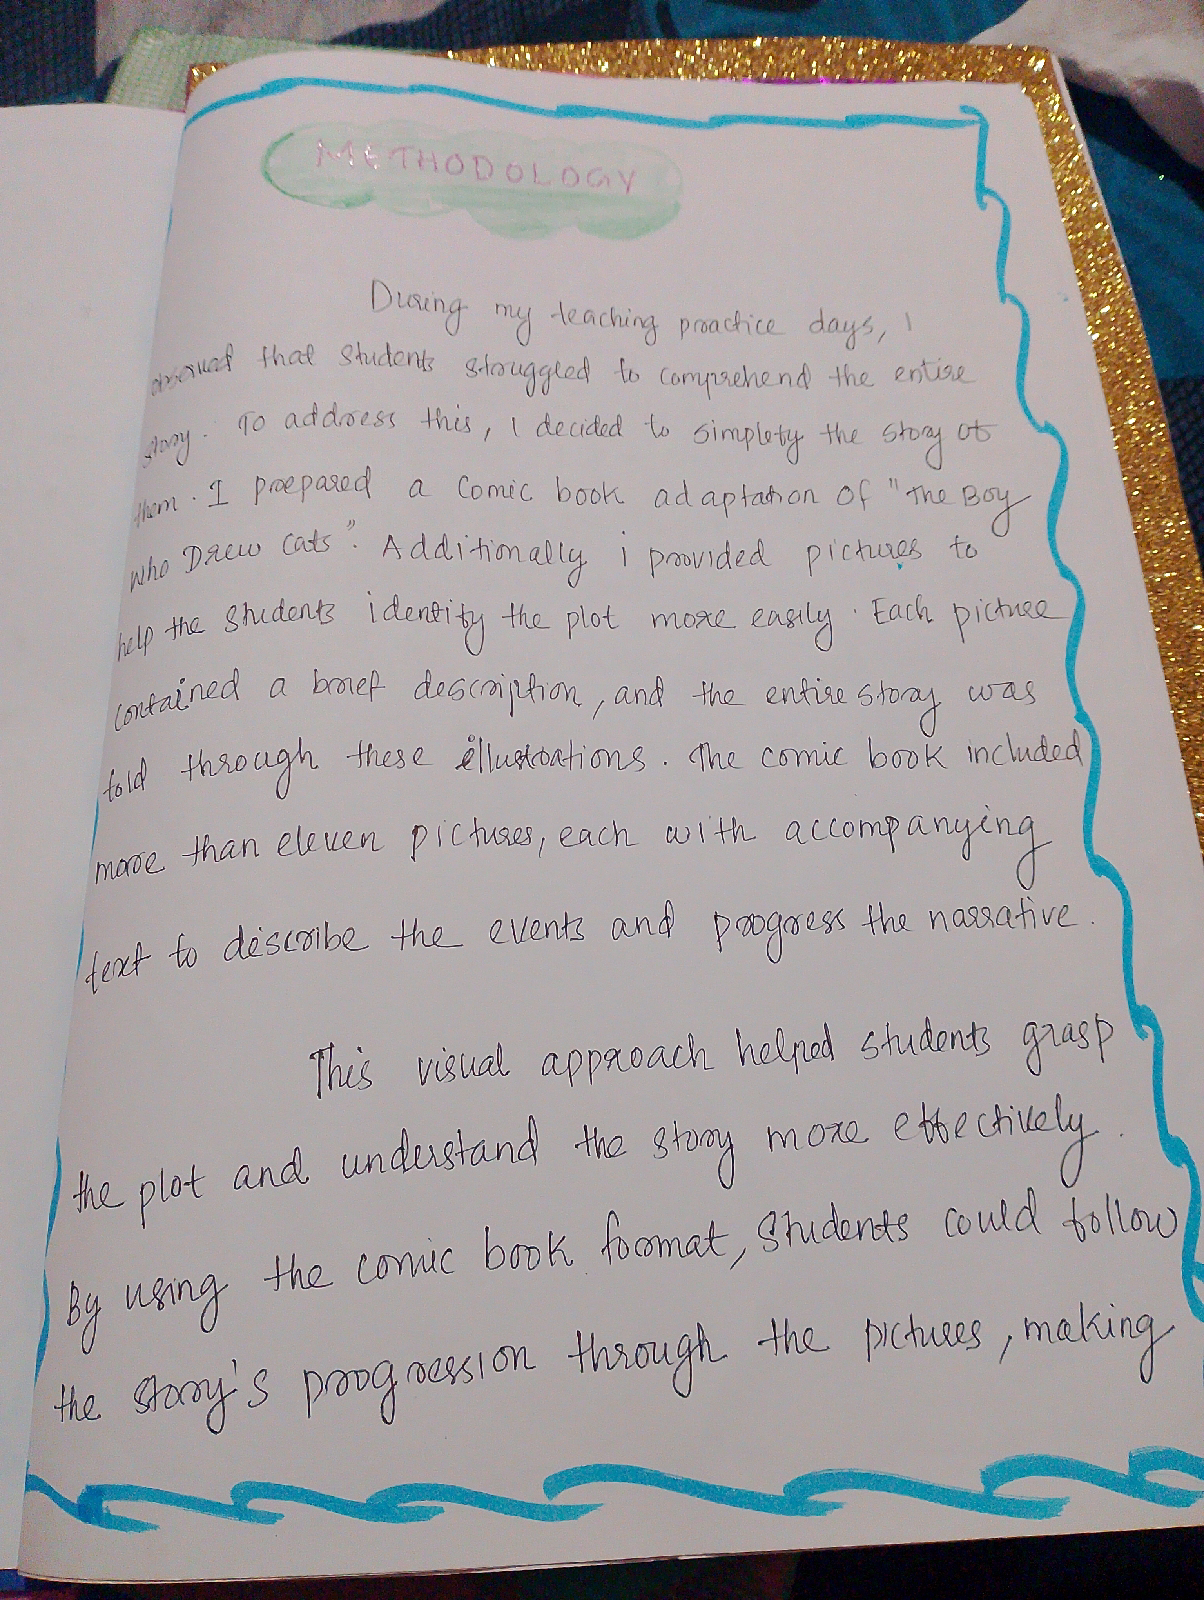 METHODOLOGY
During my teaching practice days, I
observed that students struggled to comprehend the entire
story. To address this, I decided to simplety the story ot
them. I prepared a comic book adaptation of "The Boy
who Drew Cats". Additionally i provided pictures to
help the students identity the plot more easily. Each picture
contained a brief description, and the entire story was
told through these illustrations. The comic book included
more than eleven pictures, each with accompanying
text to describe the events and progress the narrative.
This visual approach helped students grasp
the plot and understand the story more effectively.
By using the comic book format, students could follow
the story's progression through the pictures, making